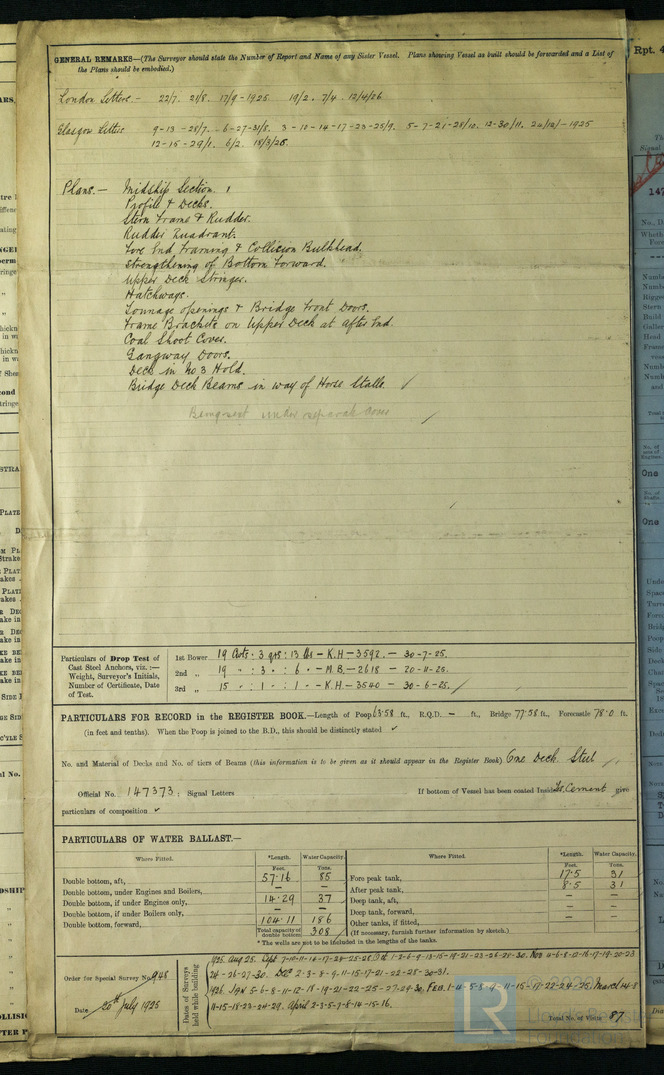 GENERAL REMARKS—(The Surveyor should state the Number of Report and Name of any Sister Vessel. Plans showing Vessel as built should be forwarded and a List of
the Plans should be embodied.)
London Letters.— 22/7. 21/8. 17/9-1925 19/2. 7/4. 12/4/26
Glasgow Letters 9-13-28/7. 6-27-31/8. 3-10-14-17-23-25/9. 5-7-21-28/10. 12-30/11. 24/12/-1925
12-15-29/1. 6/2. 18/3/26.
Plans.— Midship Section. 1
Profile & Decks.
Stern Frame & Rudder.
Rudder Quadrant.
Fore End Framing & Collision Bulkhead.
Strengthening of Bottom Forward.
Upper Deck Stringer.
Hatchways.
Tonnage openings & Bridge Front Doors.
Frame Brackets on Upper Deck at After End.
Coal Shoot Cover.
Gangway Doors.
Deck in No 3 Hold.
Bridge Deck Beams in way of Horse Stalls.
under separate cover
Particulars of Drop Test of
Cast Steel Anchors, viz.:—
Weight, Surveyor's Initials,
Number of Certificate, Date
of Test.
1st Bower 19 Cwts. 3 qrs: 13 lbs — K.H — 3592. — 30-7-25.
2nd „ 19 " : 3 " : 6 " — M.B. — 2618 — 20-11-25.
3rd „ 15 " : 1 " : 1 " — K.H — 3540 — 30-6-25.
PARTICULARS FOR RECORD in the REGISTER BOOK.—Length of Poop 63.58 ft., R.Q.D. — ft., Bridge 77.58 ft., Forecastle 78.0 ft.
(in feet and tenths). When the Poop is joined to the B.D., this should be distinctly stated
No. and Material of Decks and No. of tiers of Beams (this information is to be given as it should appear in the Register Book) One Deck. Steel
Official No. 147373; Signal Letters If bottom of Vessel has been coated Inside Cement give
particulars of composition
PARTICULARS OF WATER BALLAST.—
Where Fitted. *Length. Water Capacity. Where Fitted. *Length. Water Capacity.
Feet. Tons. Feet. Tons.
Double bottom, aft, 57.16 85 Fore peak tank, 17.5 31
Double bottom, under Engines and Boilers, — — After peak tank, 8.5 31
Double bottom, if under Engines only, 14.29 37 Deep tank, aft, — —
Double bottom, if under Boilers only, — — Deep tank, forward, — —
Double bottom, forward, 104.11 186 Other tanks, if fitted, — —
Total capacity of double bottom 308 (If necessary, furnish further information by sketch.)
* The wells are not to be included in the lengths of the tanks.
Order for Special Survey No. 948
Date 20th July 1925
Dates of Surveys
held while building
1925. Aug 25. Sept 7-10-11-14-17-28-25-28. Oct 1-2-6-9-13-15-19-21-23-26-28-30. Nov 4-6-8-12-16-17-19-20-23
24-26-27-30. Dec 2-3-8-9-11-15-17-21-22-28-30-31.
1926 Jan 5-6-8-11-12-18-19-21-22-25-27-29-30. Feb. 1-4-5-8-9-11-15-18-22-24-25. March 1-4-8
11-15-18-23-24-29. April 2-3-5-7-8-14-15-16.
Total No. of Visits 87
LR
© 2020
Lloyd's Register
Foundation
Rpt. 4